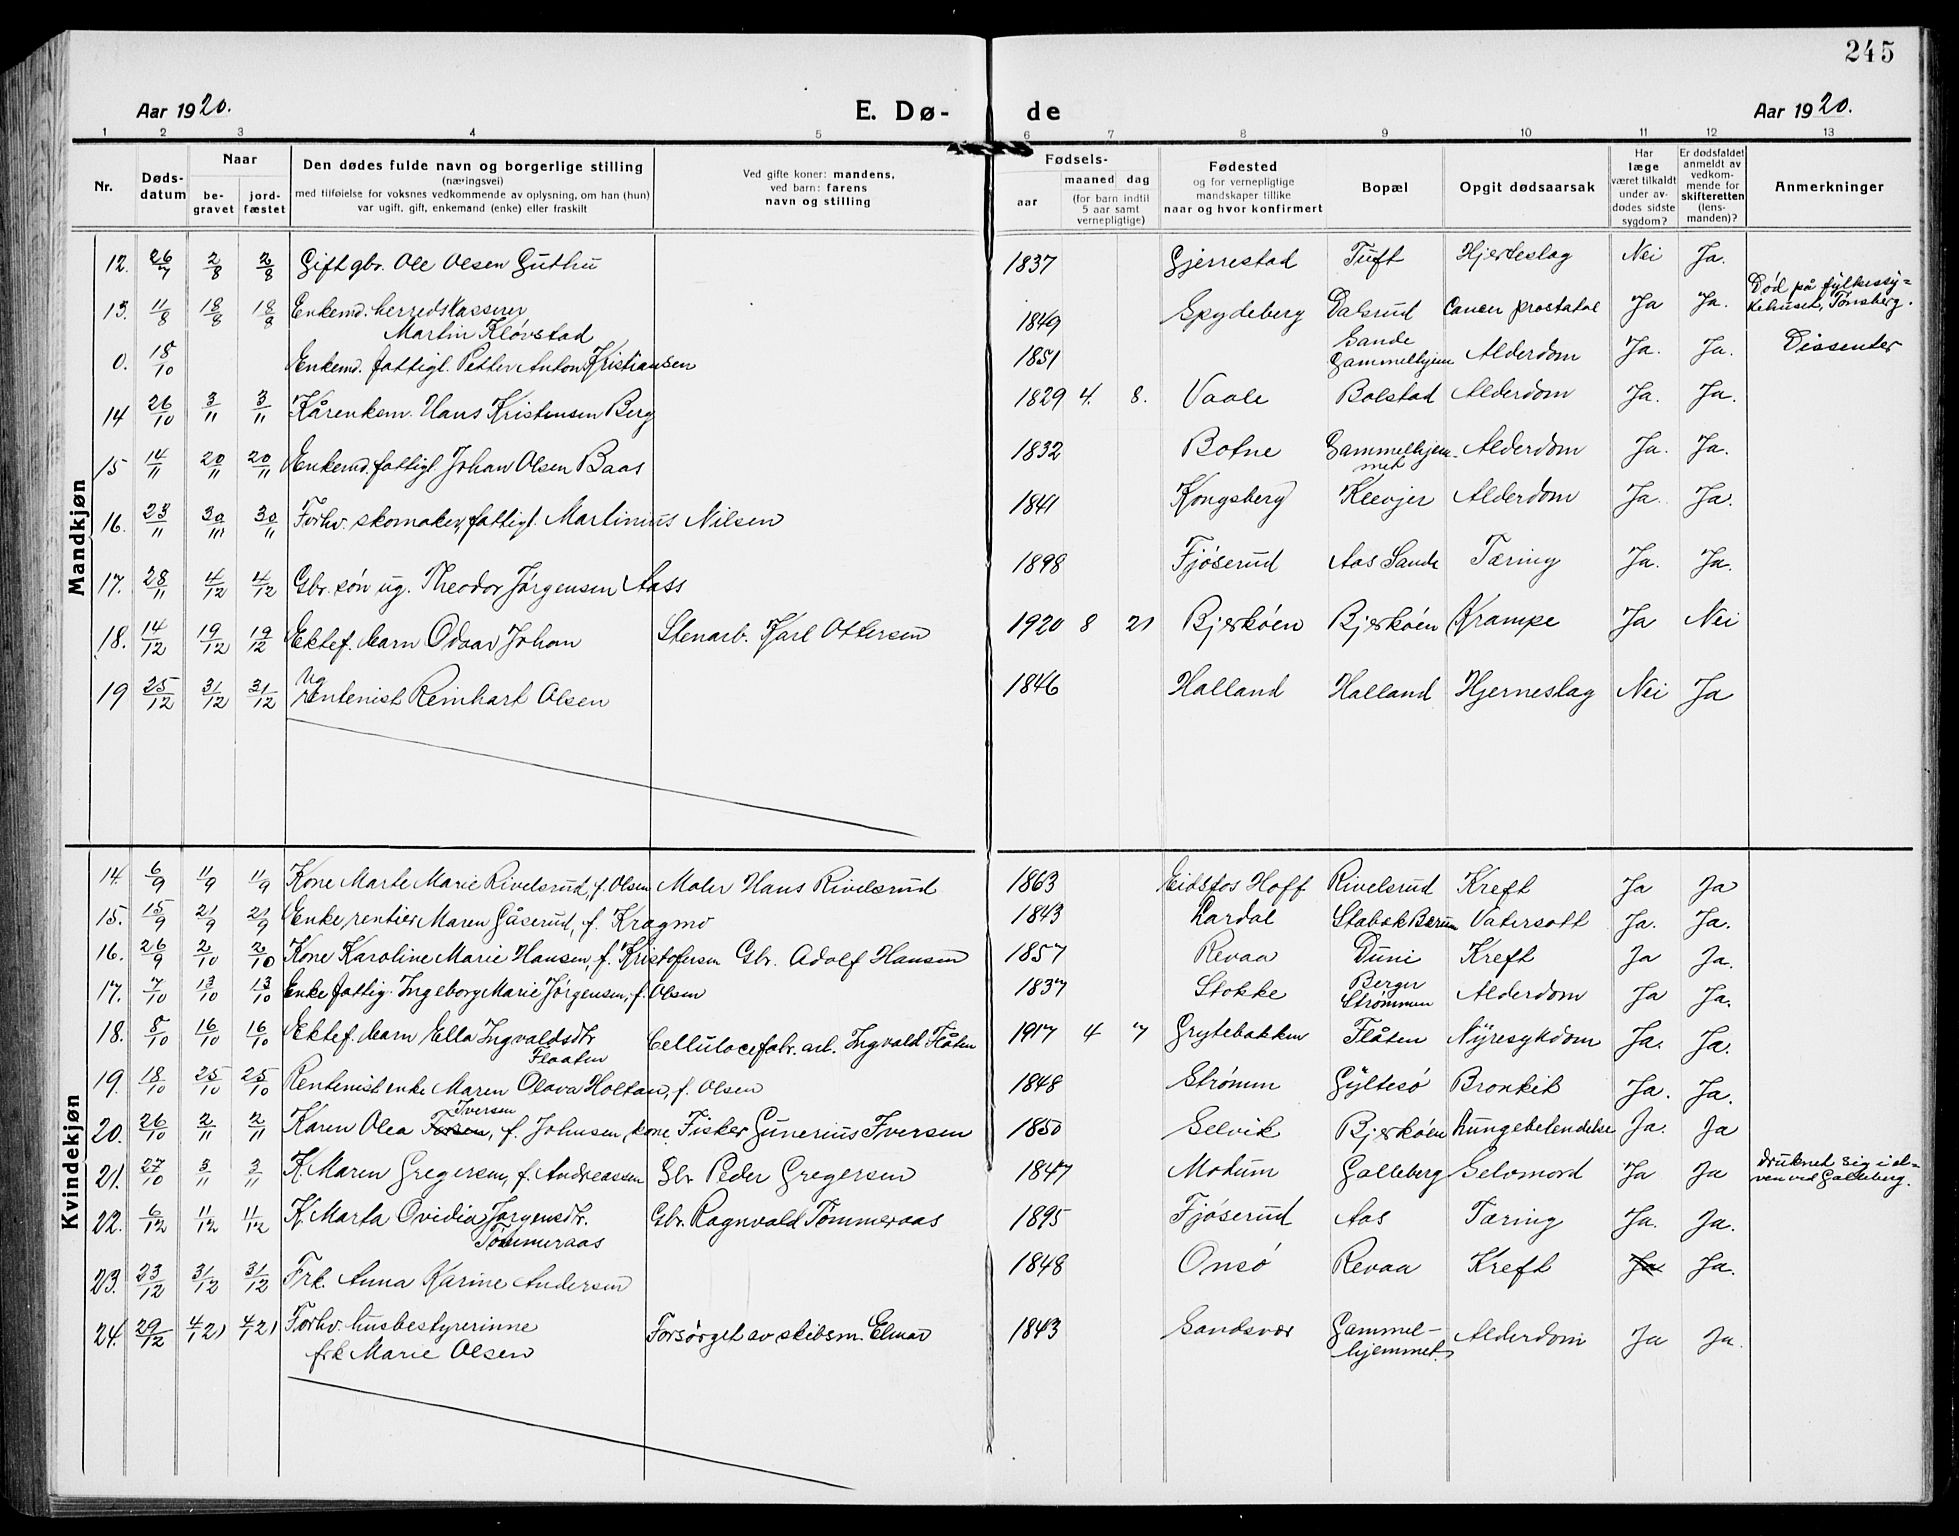 245
Aar 1920. E. Dø- de Aar 1920.
1 2 3 4 5 6 7 8 9 10 11 12 13
Nr. Døds-datum Naar be-gravet jord-fæstet Den dødes fulde navn og borgerlige stilling (næringsvei) med tilføielse for voksnes vedkommende av oplysning, om han (hun) var ugift, gift, enkemand (enke) eller fraskilt Ved gifte koner: mandens, ved barn: farens navn og stilling Fødsels- aar maaned dag (for barn indtil 5 aar samt vernepligtige) Fødested og for vernepligtige mandskaper tillike naar og hvor konfirmert Bopæl Opgit dødsaarsak Har læge været tilkaldt under av-dødes sidste sygdom? Er dødsfaldet anmeldt av vedkom-mende for skifteretten (lens-manden)? Anmerkninger
Mandkjøn
12. 26/7 2/8 2/8 Gift gbr. Ole Olsen Guthu 1837 Gjerrestad Tuft Hjerteslag Nei Ja.
13. 11/8 18/8 18/8 Enkemd. herredskasserer Martin Kløvstad 1849 Spydeberg Dalsrud Cancer prostatae Ja Ja. Død på fylkessy-kehuset, Tønsberg.
0. 18/10 Enkemd. fattigl. Petter Anton Kristiansen 1851 Sande Gammelhjem Alderdom Ja. Ja. Dissenter
14 26/10 3/11 3/11 Kårenkem. Hans Kristensen Berg 1829 4. 8. Vaale Bolstad Alderdom Ja. Ja.
15 14/11 20/11 20/11 Enkemd. fattigl. Johan Olsen Baas 1832 Botne Gammelhjem-met Alderdom Ja. Ja.
16. 23/11 30/11 30/11 Forhv. skomaker, fattigl. Martinius Nilsen 1841 Kongsberg Kleivjer Alderdom Ja. Ja.
17. 28/11 4/12 4/12 Gbr. søn ug. Theodor Jørgensen Aass 1898 Fjøserud Aas Sande Tæring Ja. Ja.
18. 14/12 19/12 19/12 Ektef. barn Odvar Johan Stenarb. Karl Ottersen 1920 8 21 Bjerkøen Bjerkøen Krampe Ja Nei
19 25/12 31/12 31/12 Ug rentenist Reinhart Olsen 1846 Halland Halland Hjerneslag Nei Ja
Kvindekjøn
14. 6/9 11/9 11/9 Kone Marte Marie Rivelsrud, f. Olsen Maler Hans Rivelsrud 1863 Eidsfos Hoff Rivelsrud Kreft Ja Ja
15. 15/9 21/9 21/9 Enke, rentier Maren Gåserud, f. Kragmo 1843 Lardal Stabæk Bærum Vatersott Ja. Ja.
16. 26/9 2/10 2/10 Kone Karoline Marie Hansen, f. Kristofersen Gbr. Adolf Hansen 1857 Revaa Duni Kreft Ja Ja.
17. 7/10 13/10 13/10 Enke fattig. Ingeborg Marie Jørgensen, f. Olsen 1837 Stokke Berger Strømmen Alderdom Ja Ja.
18. 8/10 16/10 16/10 Ektef. barn Ella Ingvaldsdtr Flaaten Cellulocefabr. arb. Ingvald Flåten 1917 4 7 Grytebakken Flåten Nyresykdom Ja. Ja.
19. 18/10 25/10 25/10 Rentenist enke Maren Olava Holtan, f. Olsen 1848 Strømm Gyltesø Bronkit Ja. Ja.
20. 26/10 2/11 2/11 Karen Olea Iversen, f. Johnsen, kone Fisker Gunerius Iversen 1850 Selvik Bjerkøen Lungebetendelse Ja. Ja
21. 27/10 3/11 3/11 K. Maren Gregersen, f. Andreassen Gbr Peder Gregersen 1847 Modum Galleberg Selvmord Ja Ja druknet sig i el-ven ved Galleberg.
22. 6/12 11/12 11/12 K. Marta Ovidia Jørgensdtr. Tømmeraas Gbr. Ragnvald Tømmeraas 1895 Fjøserud Aas Tæring Ja. Ja.
23. 23/12 31/12 31/12 Frk. Anna Karine Andersen 1848 Onsø Revaa Kreft Ja Ja.
24. 29/12 4/1 21 4/1 21 Forhv. husbestyrerinne frk Marie Olsen Forsørget av skibsm. Elnar 1843 Sandsvær Gammel-hjemmet. Alderdom Ja Ja.